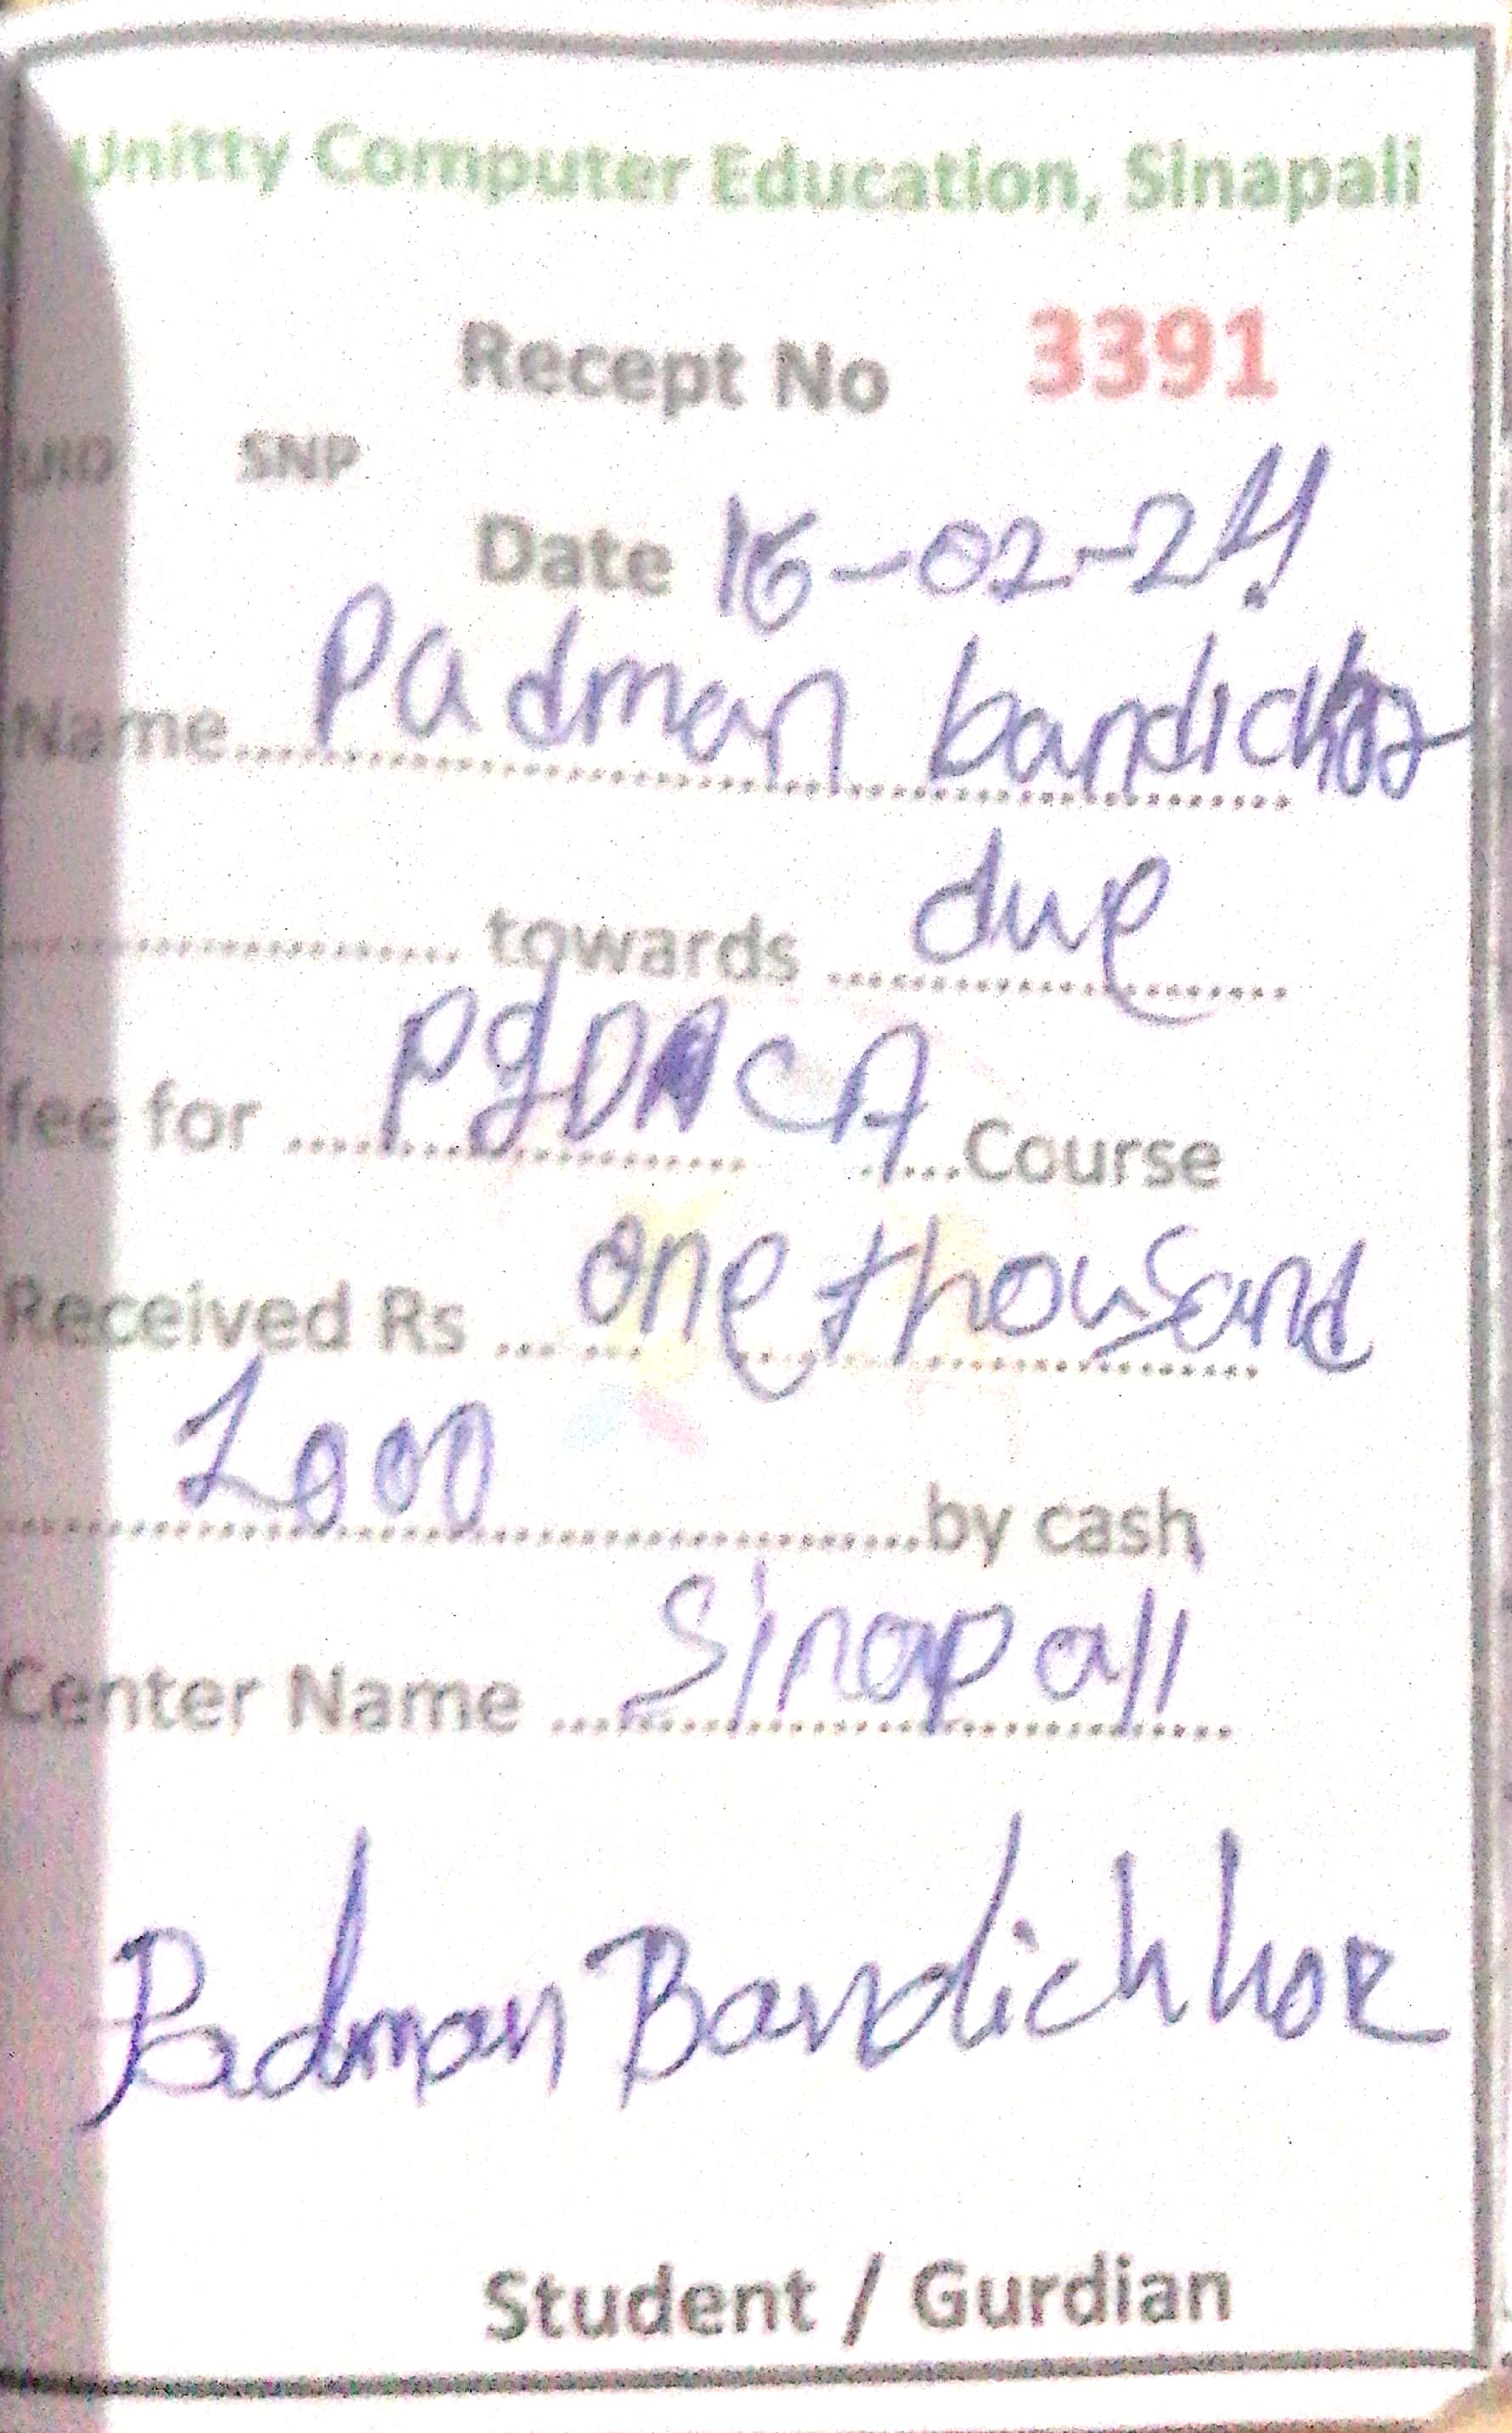 Unitty Computer Education, Sinapali
Recept No 3391
UID SNP
Date 16-02-24
Name Padman bandichhor
towards due
fee for PgDACA Course
Received Rs one thousand
1000 by cash
Center Name Sinapali
Padman Bandichhor
Student / Gurdian